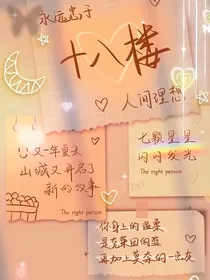 永远忠于
十八楼
人间理想
又一年夏天
山城又开启了
新的故事
The right person
七颗星星
闪闪发光
The right person
你身上的温柔
是花果园的盈
再加上莫奈的一点灰